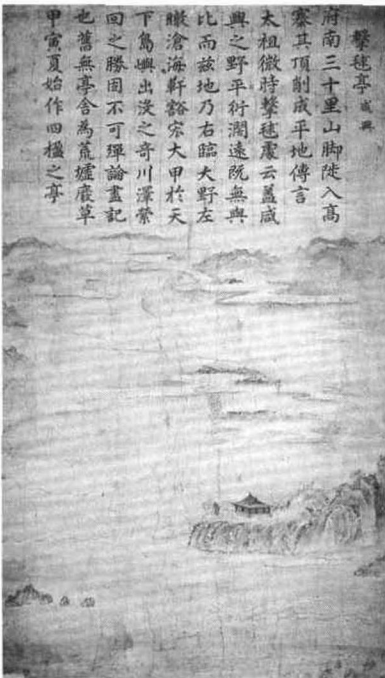 擊毬亭 咸興
府南三十里山脚陡入高
寨其頂削成平地傳言
太祖微時擊毬處云蓋咸
興之野平衍濶遠既無與
比而茲地乃右臨大野左
瞰滄海軒豁宏大甲於天
下島嶼出没之奇川澤縈
回之勝固不可殫論盡記
也舊無亭舍為荒墟廢草
甲寅夏始作四楹之亭